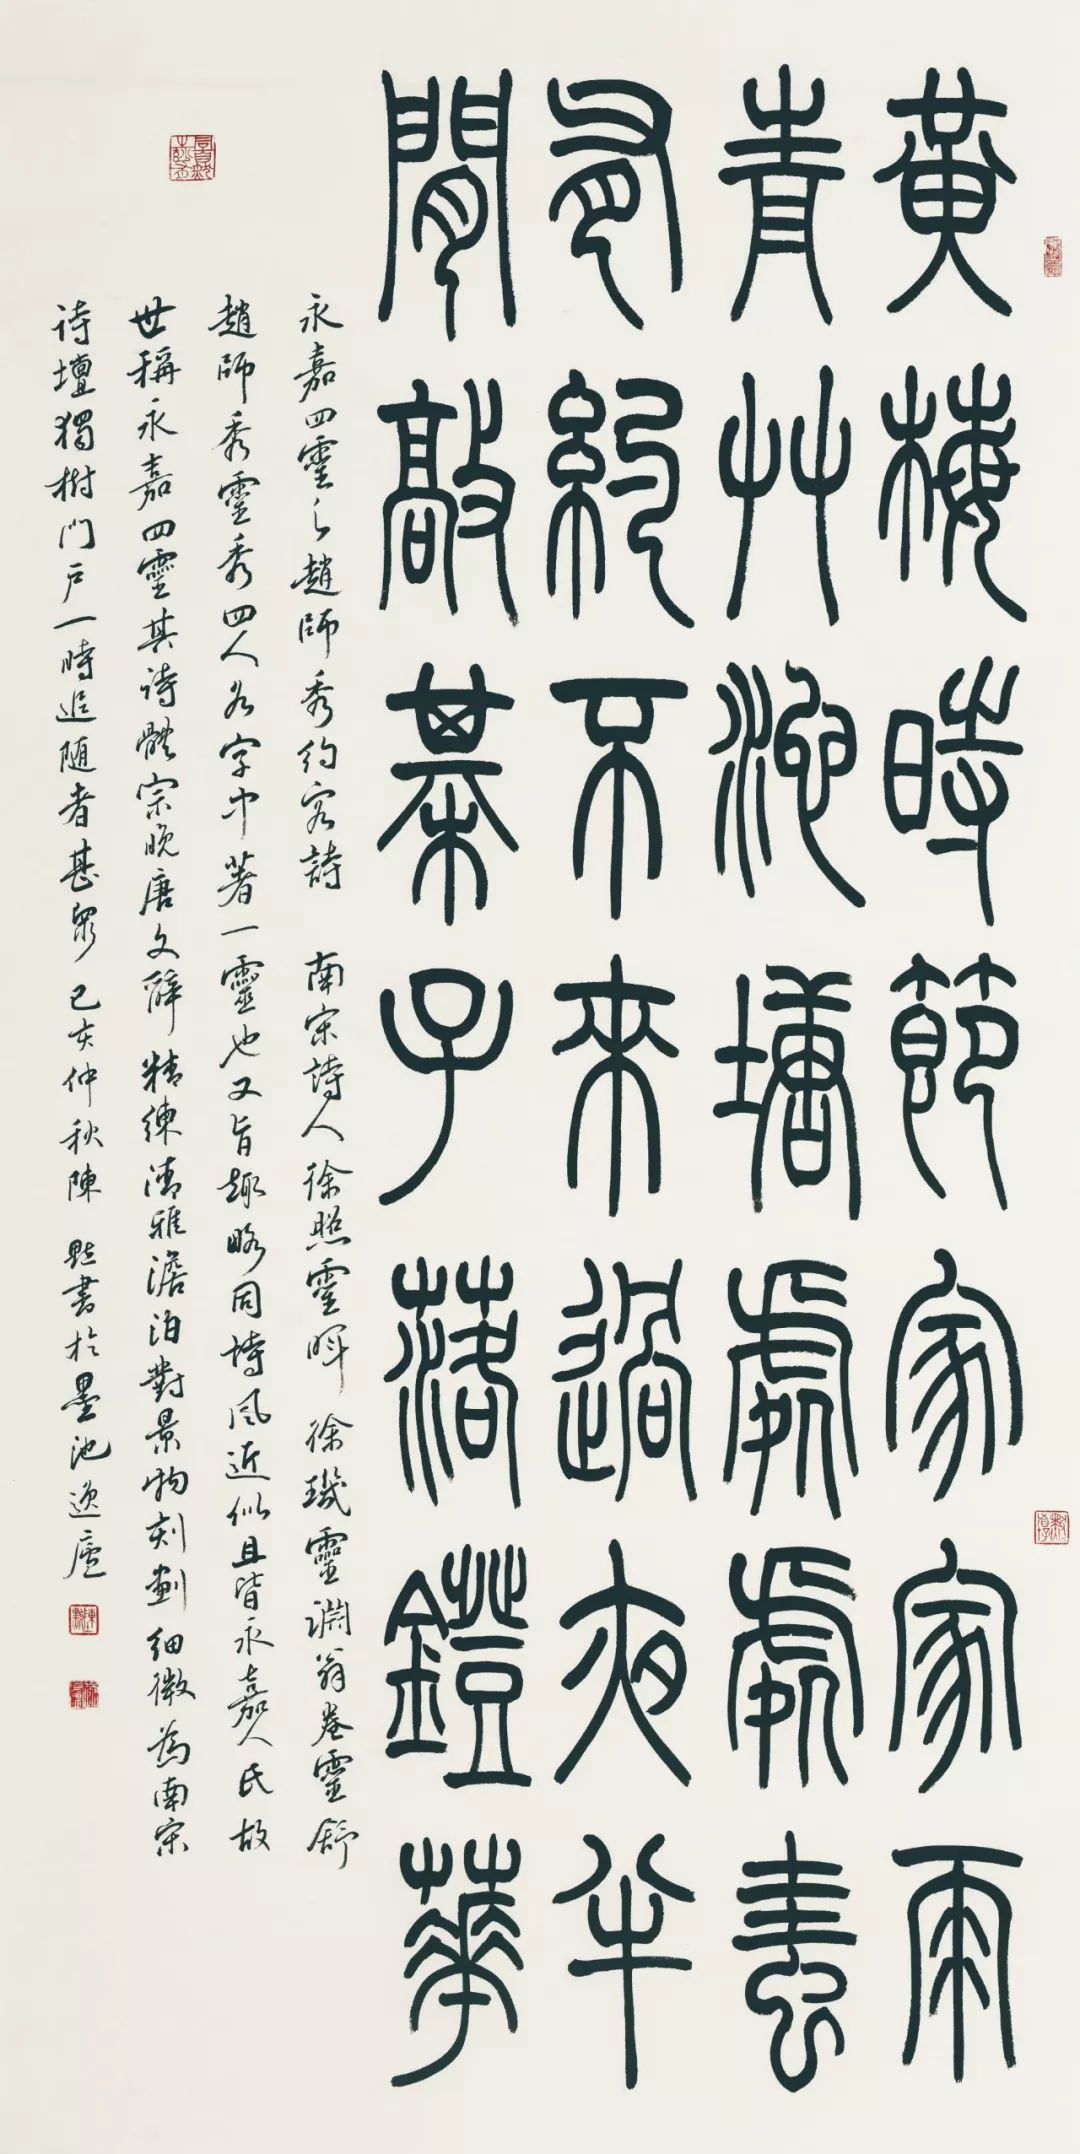 黄梅時節家家雨
青艸池塘處處蛙
有約不來過夜半
閒敲棊子落鐙華
永嘉四靈之趙師秀約客詩 南宋詩人徐照靈暉徐璣靈淵翁卷靈舒
趙師秀靈秀四人名字中著一靈也又旨趣略同詩風近似且皆永嘉人氏故
世稱永嘉四靈其詩體宗晚唐文辭精練清雅澹泊對景物刻劃細微為南宋
詩壇獨樹門戶一時追隨者甚眾己亥仲秋陳書於墨池逸廬